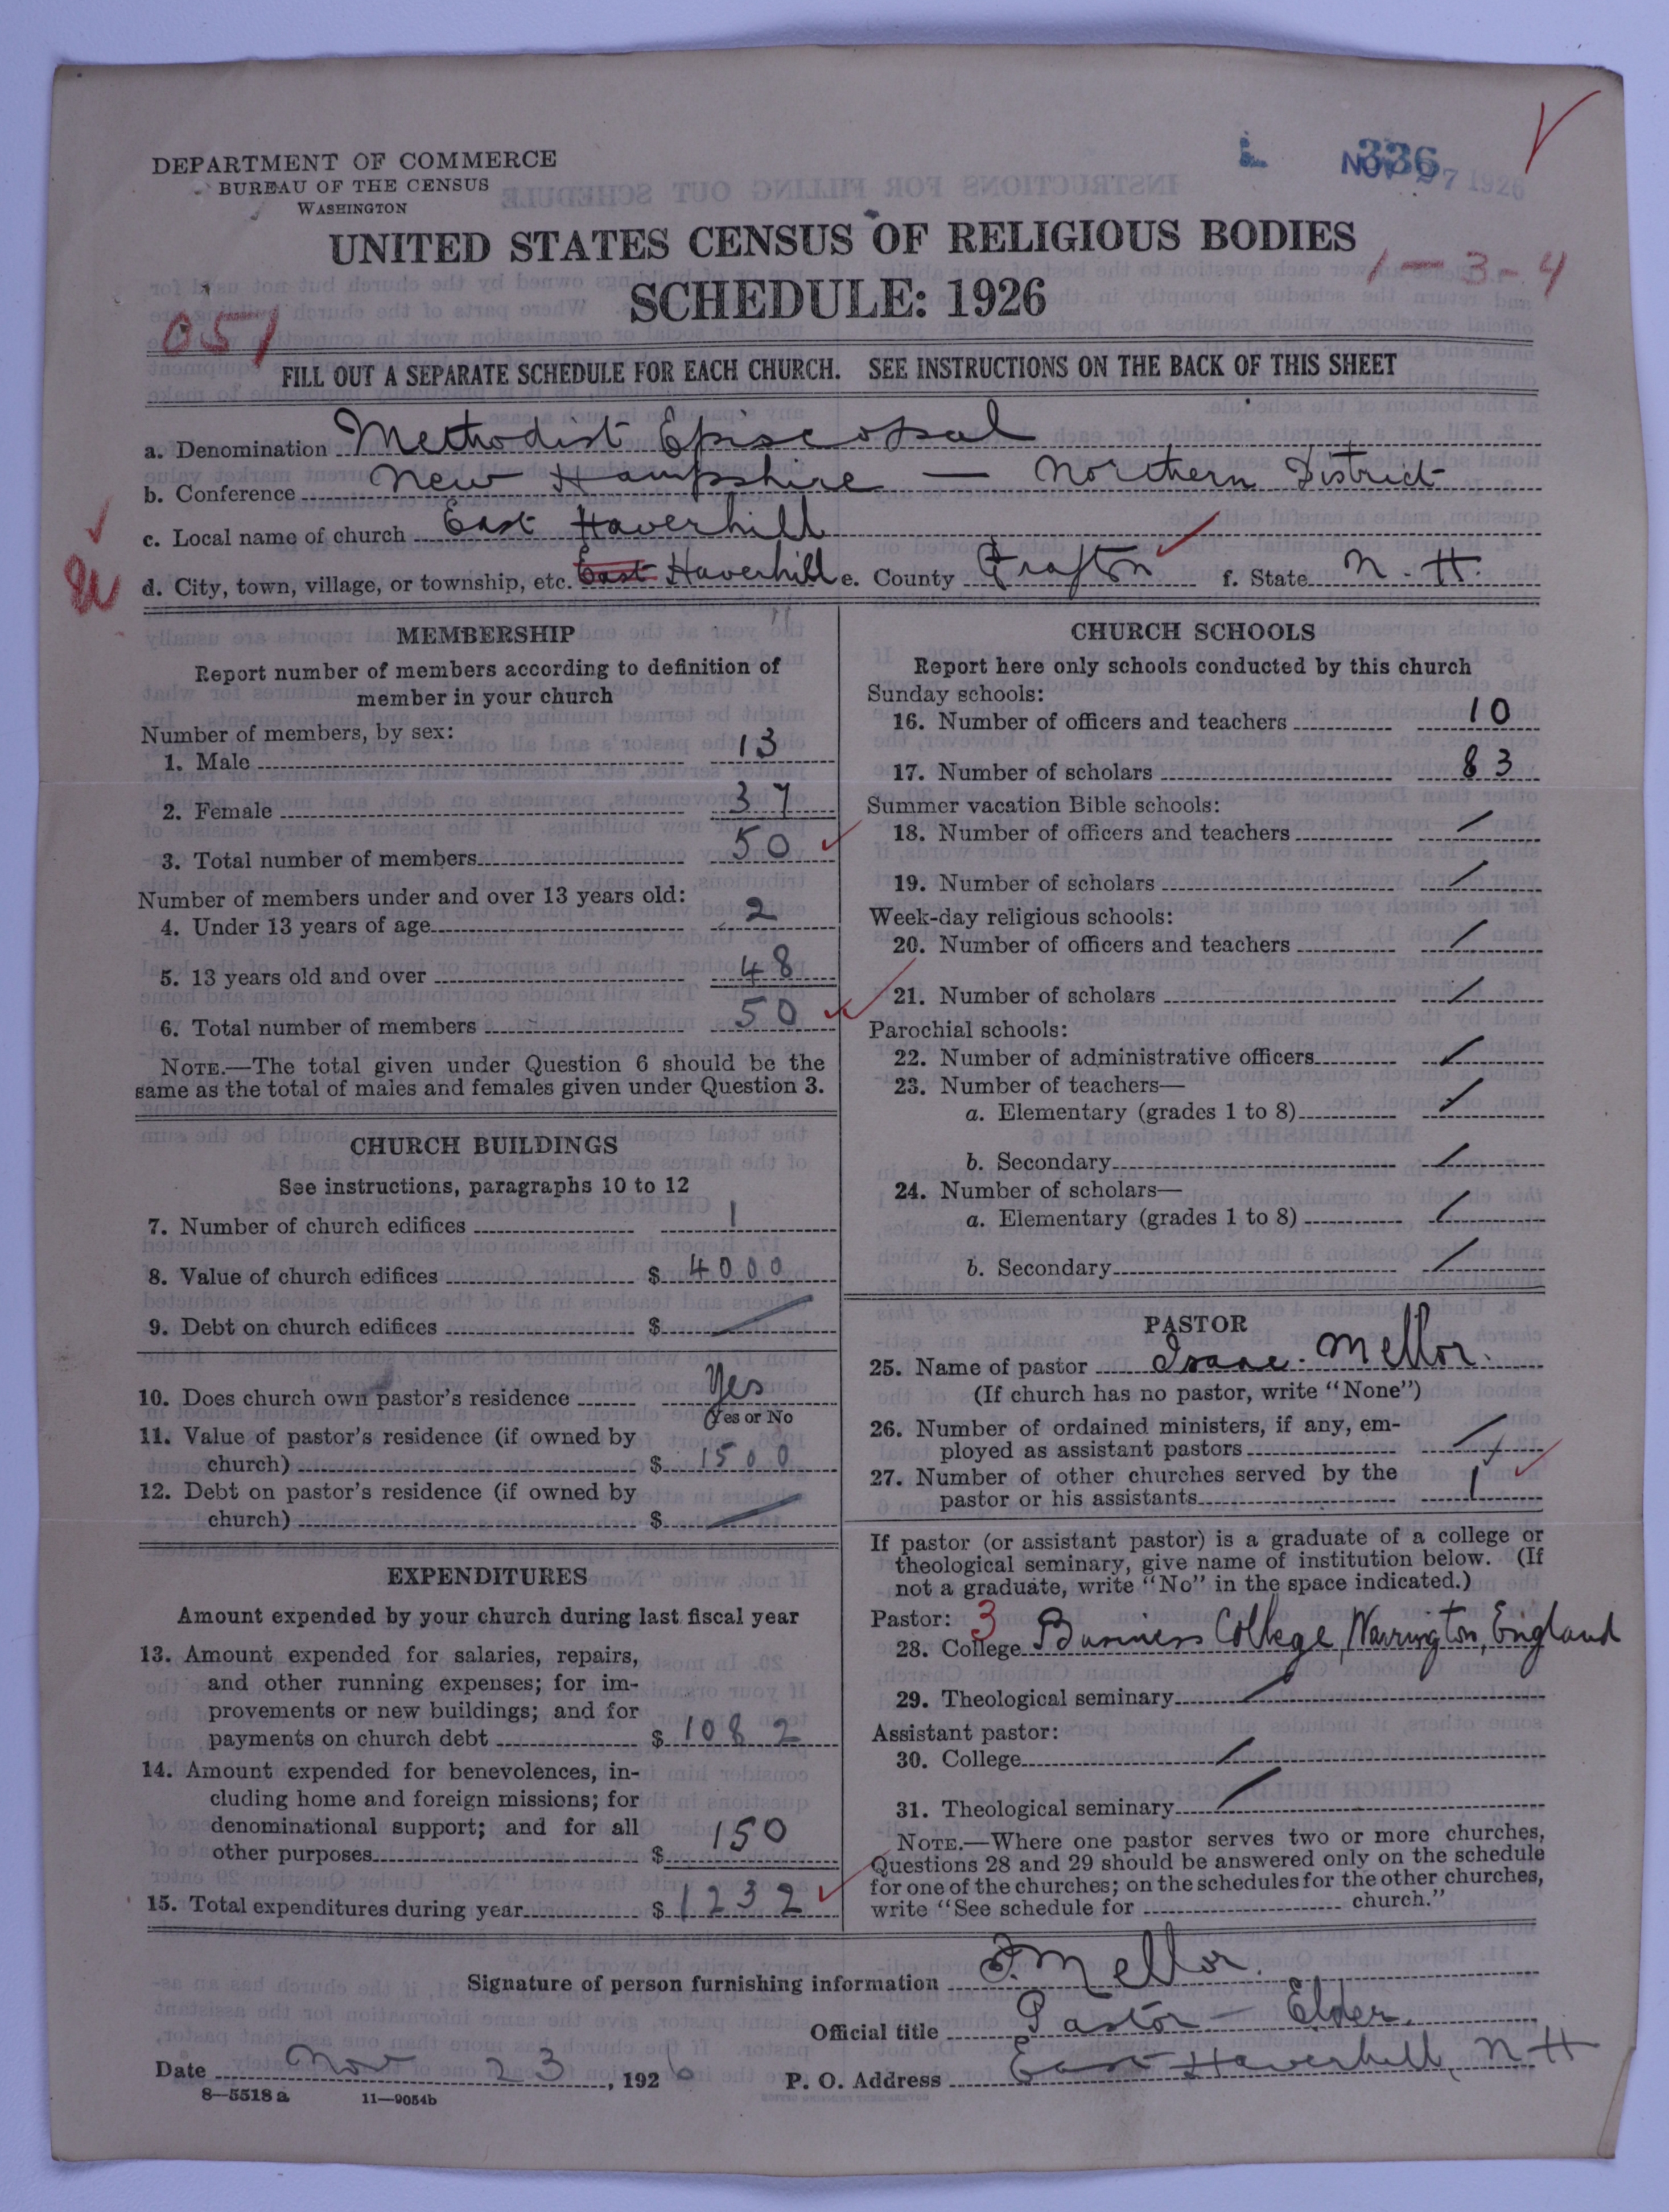 DEPARTMENT OF COMMERCE
BUREAU OF THE CENSUS
WASHINGTON
336
NOV 27 1926
UNITED STATES CENSUS OF RELIGIOUS BODIES
SCHEDULE: 1926
1-3-4
051
FILL OUT A SEPARATE SCHEDULE FOR EACH CHURCH. SEE INSTRUCTIONS ON THE BACK OF THIS SHEET
a. Denomination Methodist Episcopal
b. Conference New Hampshire — Northern District
c. Local name of church East Haverhill
d. City, town, village, or township, etc. East Haverhill e. County Grafton f. State N. H.
MEMBERSHIP
Report number of members according to definition of
member in your church
Number of members, by sex:
1. Male 13
2. Female 37
3. Total number of members 50
Number of members under and over 13 years old:
4. Under 13 years of age 2
5. 13 years old and over 48
6. Total number of members 50
NOTE.—The total given under Question 6 should be the
same as the total of males and females given under Question 3.
CHURCH BUILDINGS
See instructions, paragraphs 10 to 12
7. Number of church edifices 1
8. Value of church edifices $ 4000
9. Debt on church edifices $ /
10. Does church own pastor's residence Yes
Yes or No
11. Value of pastor's residence (if owned by
church) $ 1500
12. Debt on pastor's residence (if owned by
church) $ /
EXPENDITURES
Amount expended by your church during last fiscal year
13. Amount expended for salaries, repairs,
and other running expenses; for im-
provements or new buildings; and for
payments on church debt $ 1082
14. Amount expended for benevolences, in-
cluding home and foreign missions; for
denominational support; and for all
other purposes $ 150
15. Total expenditures during year $ 1232
CHURCH SCHOOLS
Report here only schools conducted by this church
Sunday schools:
16. Number of officers and teachers 10
17. Number of scholars 83
Summer vacation Bible schools:
18. Number of officers and teachers /
19. Number of scholars /
Week-day religious schools:
20. Number of officers and teachers /
21. Number of scholars /
Parochial schools:
22. Number of administrative officers /
23. Number of teachers—
a. Elementary (grades 1 to 8) /
b. Secondary /
24. Number of scholars—
a. Elementary (grades 1 to 8) /
b. Secondary /
PASTOR
25. Name of pastor Isaac. Mellor.
(If church has no pastor, write "None")
26. Number of ordained ministers, if any, em-
ployed as assistant pastors /
27. Number of other churches served by the
pastor or his assistants 1
If pastor (or assistant pastor) is a graduate of a college or
theological seminary, give name of institution below. (If
not a graduate, write "No" in the space indicated.)
Pastor: 3
28. College Business College, Warrington, England
29. Theological seminary /
Assistant pastor:
30. College /
31. Theological seminary /
NOTE.—Where one pastor serves two or more churches,
Questions 28 and 29 should be answered only on the schedule
for one of the churches; on the schedules for the other churches,
write "See schedule for church."
Signature of person furnishing information I. Mellor.
Official title Pastor - Elder.
Date Nov 23, 1926 P. O. Address East Haverhill, N H
8-5518 a 11-9054b